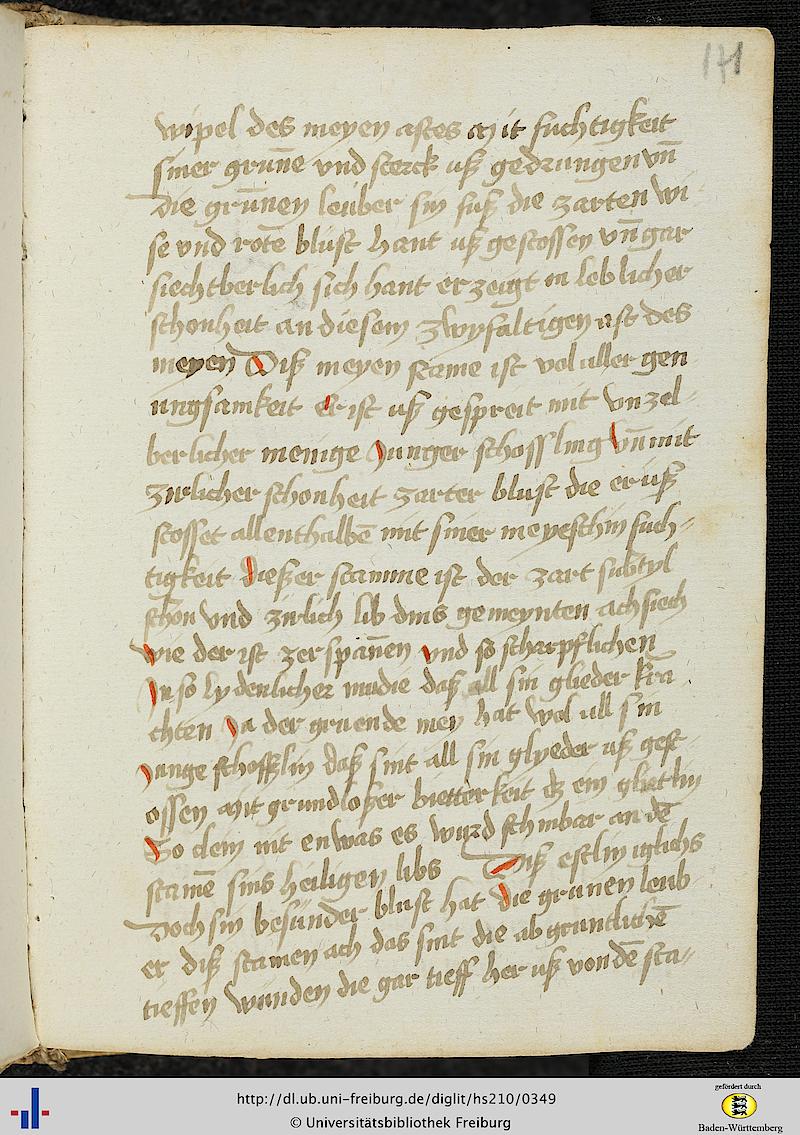 171
wipel des meyen astes mit fuchtigkeit
siner grūne vnd sterck uß gedrungen vn̄
die grūnen leüber sin fuß die zarten wi
se vnd rote blüst hant uß gestossen vn̄ gar
siechtberlich sich hant erzeigt in leblicher
schonheit an diesem zwyfaltigen ast des
meyen Diß meyen stame ist vol aller gen
ungsamkeit er ist uß gespreit mit vnzel-
berlicher menige Junger schossling vn̄ mit
zirlicher schonheit zarter blust die er uß
stosset allenthalbē mit siner meyeschin fuch-
tigkeit dießer stamme ist der zart subtyl
schon vnd zirlich lib dins gemeynten ach siech
wie der ist zerspānen vnd so scharpflichen
In so lydenlicher maße daß all sin glieder kra
chten Ja der gruende mey hat wol all sin
Junge schosslin daß sint all sin glyeder uß gest-
ossen mit grundloßer bietterkeit dz ein glietlin
So clein nit enwas es wurd schinbar an dē
stamē sins heiligen libs Diß estlin iglichs
Doch sin besunder blust hat die grunen leub-
er diß stamen ach das sint die abgruntlichē
tieffen wunden die gar tieff her uß von dē sta-
http://dl.ub.uni-freiburg.de/diglit/hs210/0349
© Universitätsbibliothek Freiburg
gefördert durch
Baden-Württemberg